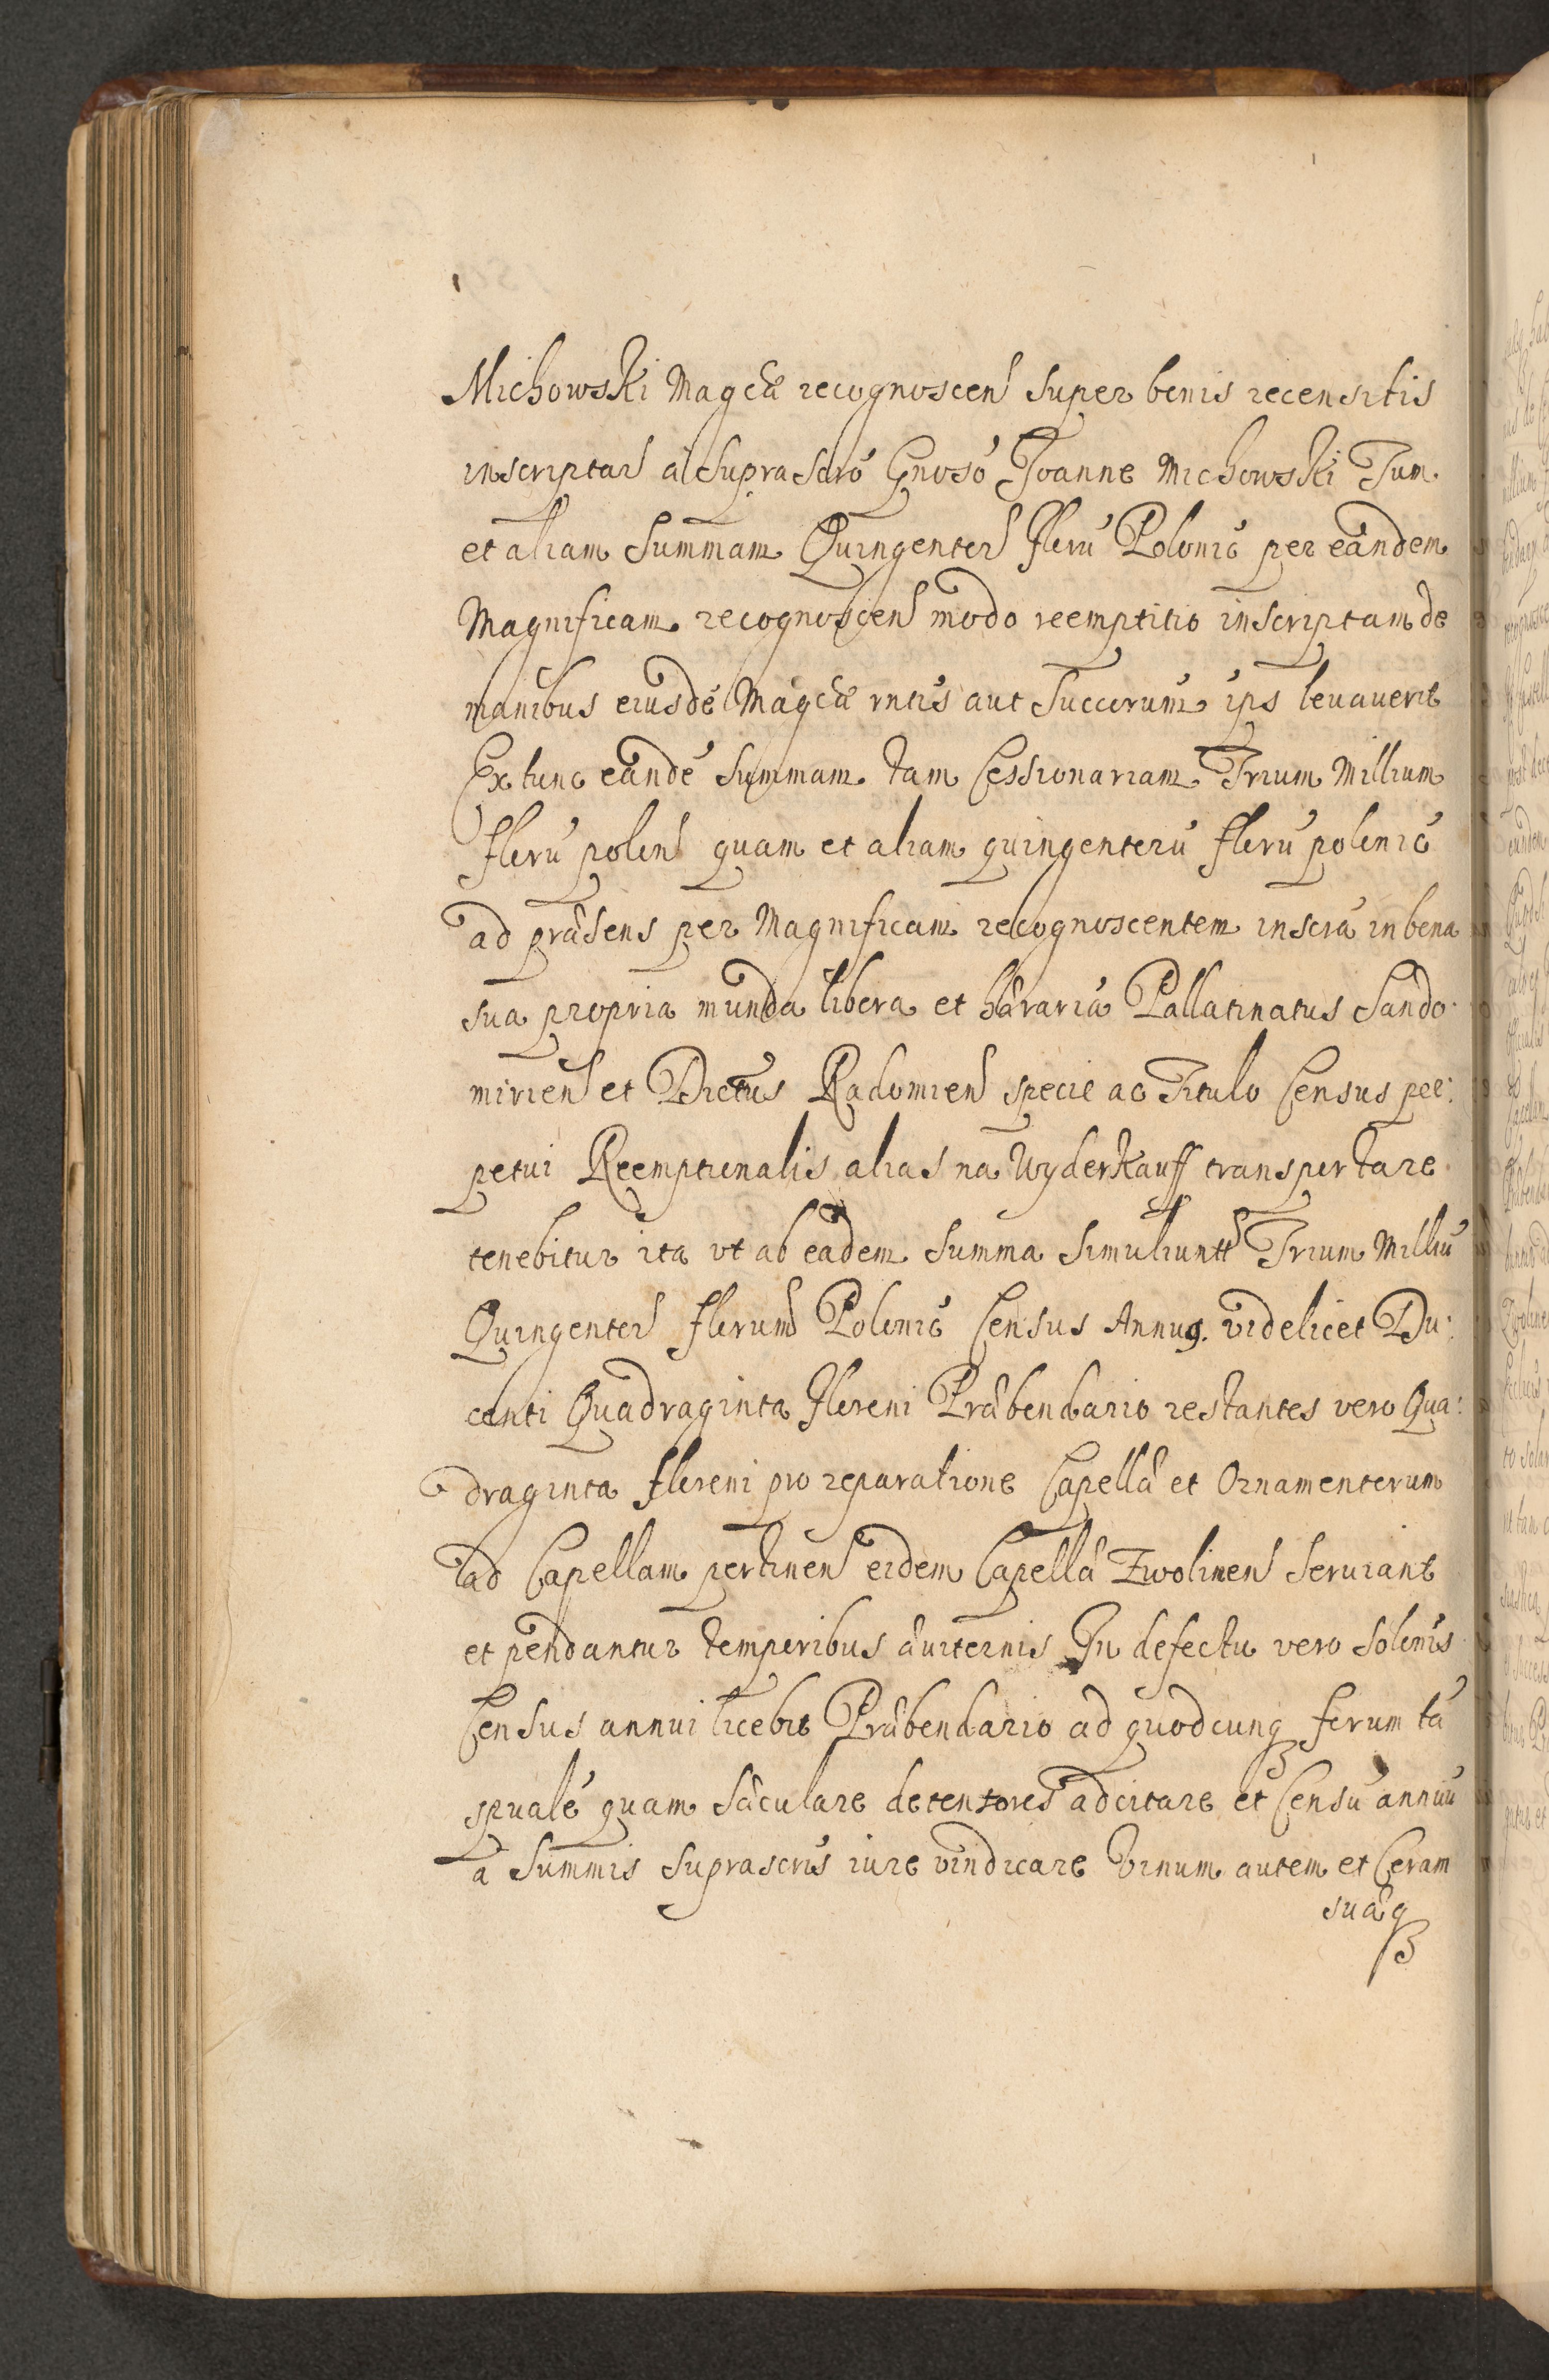 Michowski Magcæ recognoscen super bonis recensitis
inscriptas a suprascrõ Gnosó Joanne Michowski Tum
et aliam Summam Quingentor Floru Polonic per eandem
Magnificam recognoscen modo reemptitio inscriptam de
manibus eiusdé Magcæ rntis aut Succorum ips levaverit
Extunc eandé Summam tam Cessionariam Trium Millium
floru polon quam et aliam quingentoru floru polonic
ad præsens per Magnificam recognoscentem inscrã in bona
sua propria munda libera et hæraria Pallatinatus Sando
mirien et Dictus Radomien specie ac Titulo Census per:
petui Reemptionalis alias na Wyderkauff transportare
tenebitur ita vt ab eadem Summa Trium Milliu
Quingentor florum Polonic Census Annus. videlicet Du:
centi Quadraginta floreni Præbendario restantes vero Qua:
draginta floreni pro reparatione Capellæ et Ornamentorum
ad Capellam pertinen eidem Capellæ Zwolinen serviant
et pendantur temporibus æviternis In defectu vero solonis
Census annui licebit Præbendario ad quodcunq forum tã
spualé quam sæculare detentores adcitare et Censu annuu
a Summis suprascris iure vindicare Vinum autem et Ceram
suaq